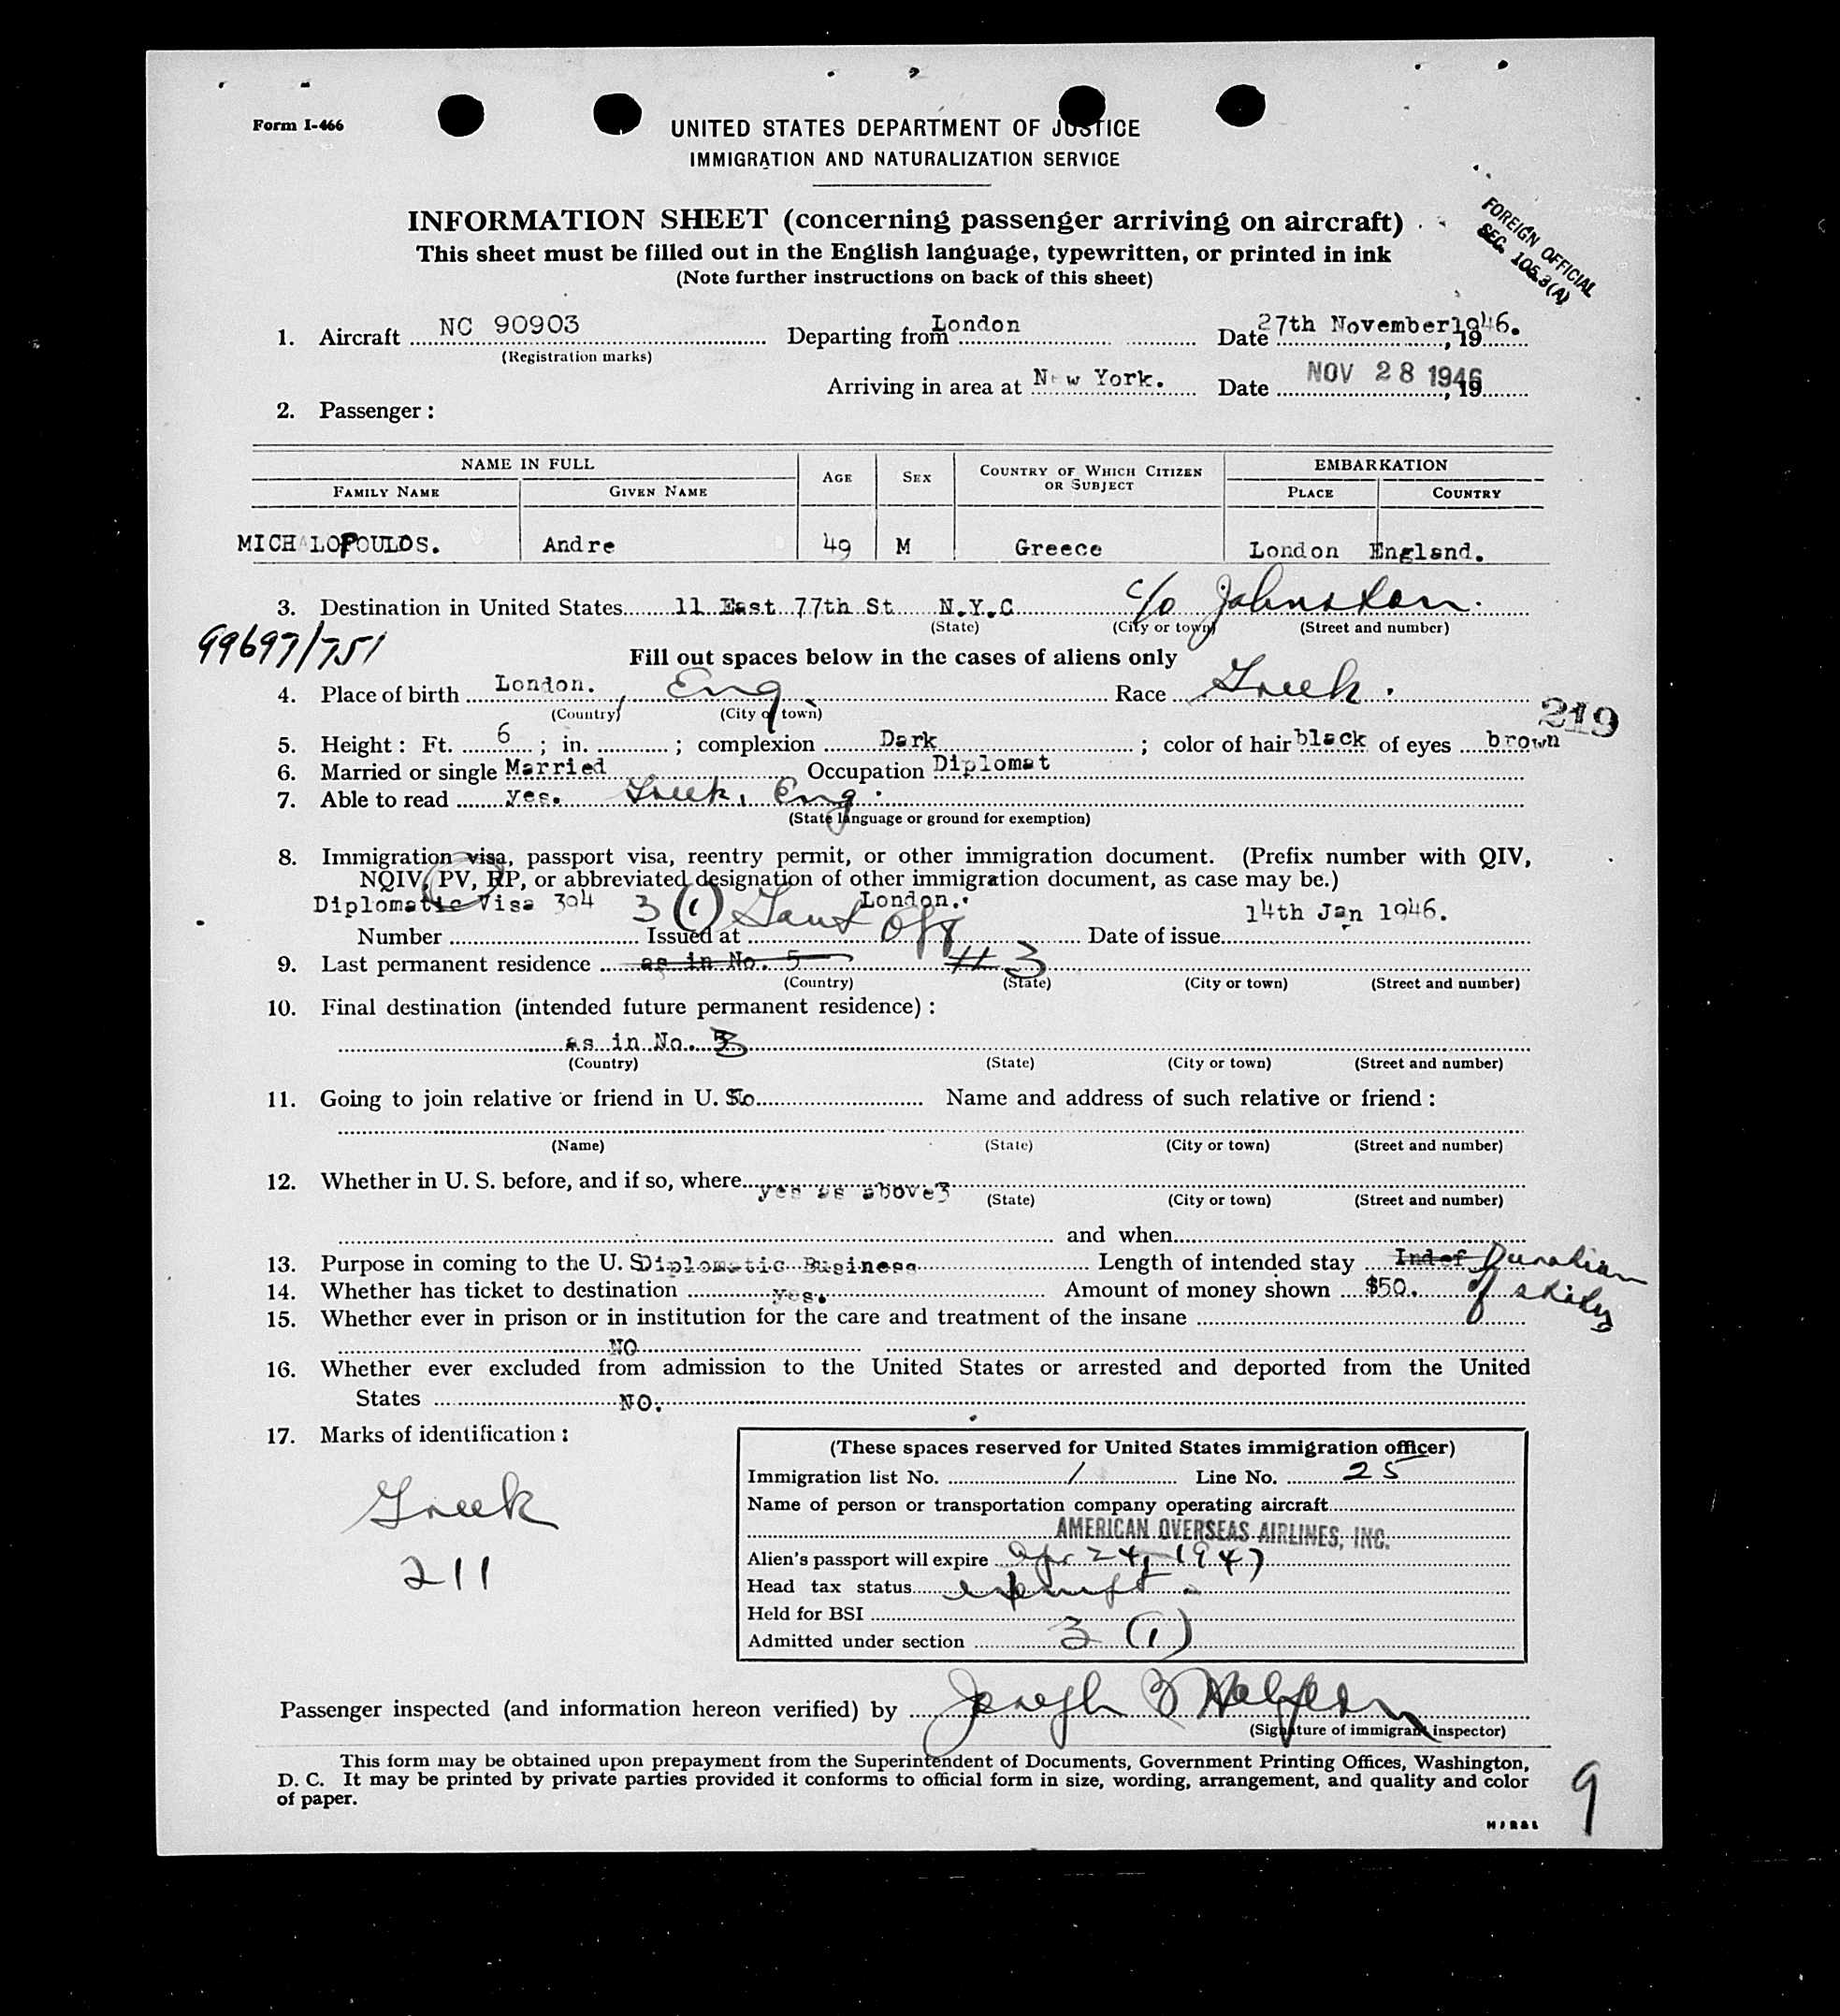 Form I-466
UNITED STATES DEPARTMENT OF JUSTICE
IMMIGRATION AND NATURALIZATION SERVICE
INFORMATION SHEET (concerning passenger arriving on aircraft)
This sheet must be filled out in the English language, typewritten, or printed in ink
(Note further instructions on back of this sheet)
FOREIGN OFFICIAL
SEC. 105.3(A)
1. Aircraft NC 90903 Departing from London Date 27th November 1946.
(Registration marks)
Arriving in area at New York. Date NOV 28 1946, 19
2. Passenger :
NAME IN FULL AGE SEX COUNTRY OF WHICH CITIZEN OR SUBJECT EMBARKATION
FAMILY NAME GIVEN NAME PLACE COUNTRY
MICHALOPOULOS. Andre 49 M Greece London England.
3. Destination in United States 11 East 77th St N.Y.C c/o Johnston.
(State) (City or town) (Street and number)
99697/751
Fill out spaces below in the cases of aliens only
4. Place of birth London. Eng Race Greek.
(Country) (City or town)
219
5. Height : Ft. 6 ; in. ; complexion Dark ; color of hair black of eyes brown
6. Married or single Married Occupation Diplomat
7. Able to read yes. Greek, Eng.
(State language or ground for exemption)
8. Immigration visa, passport visa, reentry permit, or other immigration document. (Prefix number with QIV,
NQIV, PV, RP, or abbreviated designation of other immigration document, as case may be.)
Diplomatic Visa 304 3 (1) London. 14th Jan 1946.
Number Issued at Date of issue
9. Last permanent residence as in No. 5 #3
(Country) (State) (City or town) (Street and number)
10. Final destination (intended future permanent residence) :
as in No. 3
(Country) (State) (City or town) (Street and number)
11. Going to join relative or friend in U. S. No Name and address of such relative or friend :
(Name) (State) (City or town) (Street and number)
12. Whether in U. S. before, and if so, where yes as above 3
(State) (City or town) (Street and number)
and when
13. Purpose in coming to the U. S. Diplomatic Business Length of intended stay Indef Duration
14. Whether has ticket to destination yes. Amount of money shown $50. of
15. Whether ever in prison or in institution for the care and treatment of the insane
NO
16. Whether ever excluded from admission to the United States or arrested and deported from the United
States NO.
17. Marks of identification :
Greek
211
(These spaces reserved for United States immigration officer)
Immigration list No. 1 Line No. 25
Name of person or transportation company operating aircraft
AMERICAN OVERSEAS AIRLINES, INC.
Alien's passport will expire Apr 24, 1947
Head tax status exempt.
Held for BSI
Admitted under section 3 (1)
Passenger inspected (and information hereon verified) by Joseph
(Signature of immigrant inspector)
This form may be obtained upon prepayment from the Superintendent of Documents, Government Printing Offices, Washington,
D. C. It may be printed by private parties provided it conforms to official form in size, wording, arrangement, and quality and color
of paper.
9